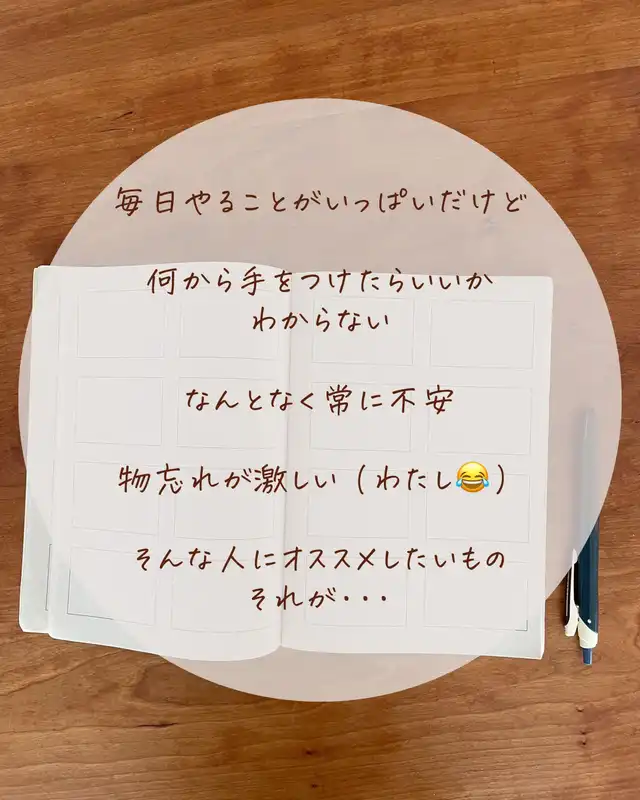 毎日やることがいっぱいだけど
何から手をつけたらいいか
わからない
なんとなく常に不安
物忘れが激しい（わたし😂）
そんな人にオススメしたいもの
それが・・・